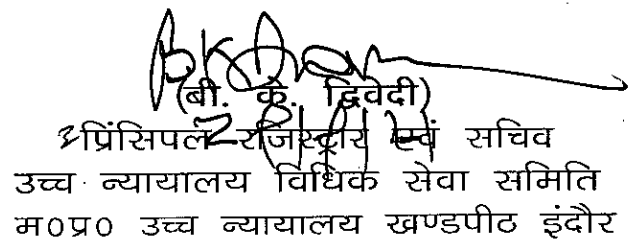 (बी. के. द्विवेदी)
प्रिंसिपल रजिस्ट्रार एवं सचिव
उच्च न्यायालय विधिक सेवा समिति
म0प्र0 उच्च न्यायालय खण्डपीठ इंदौर